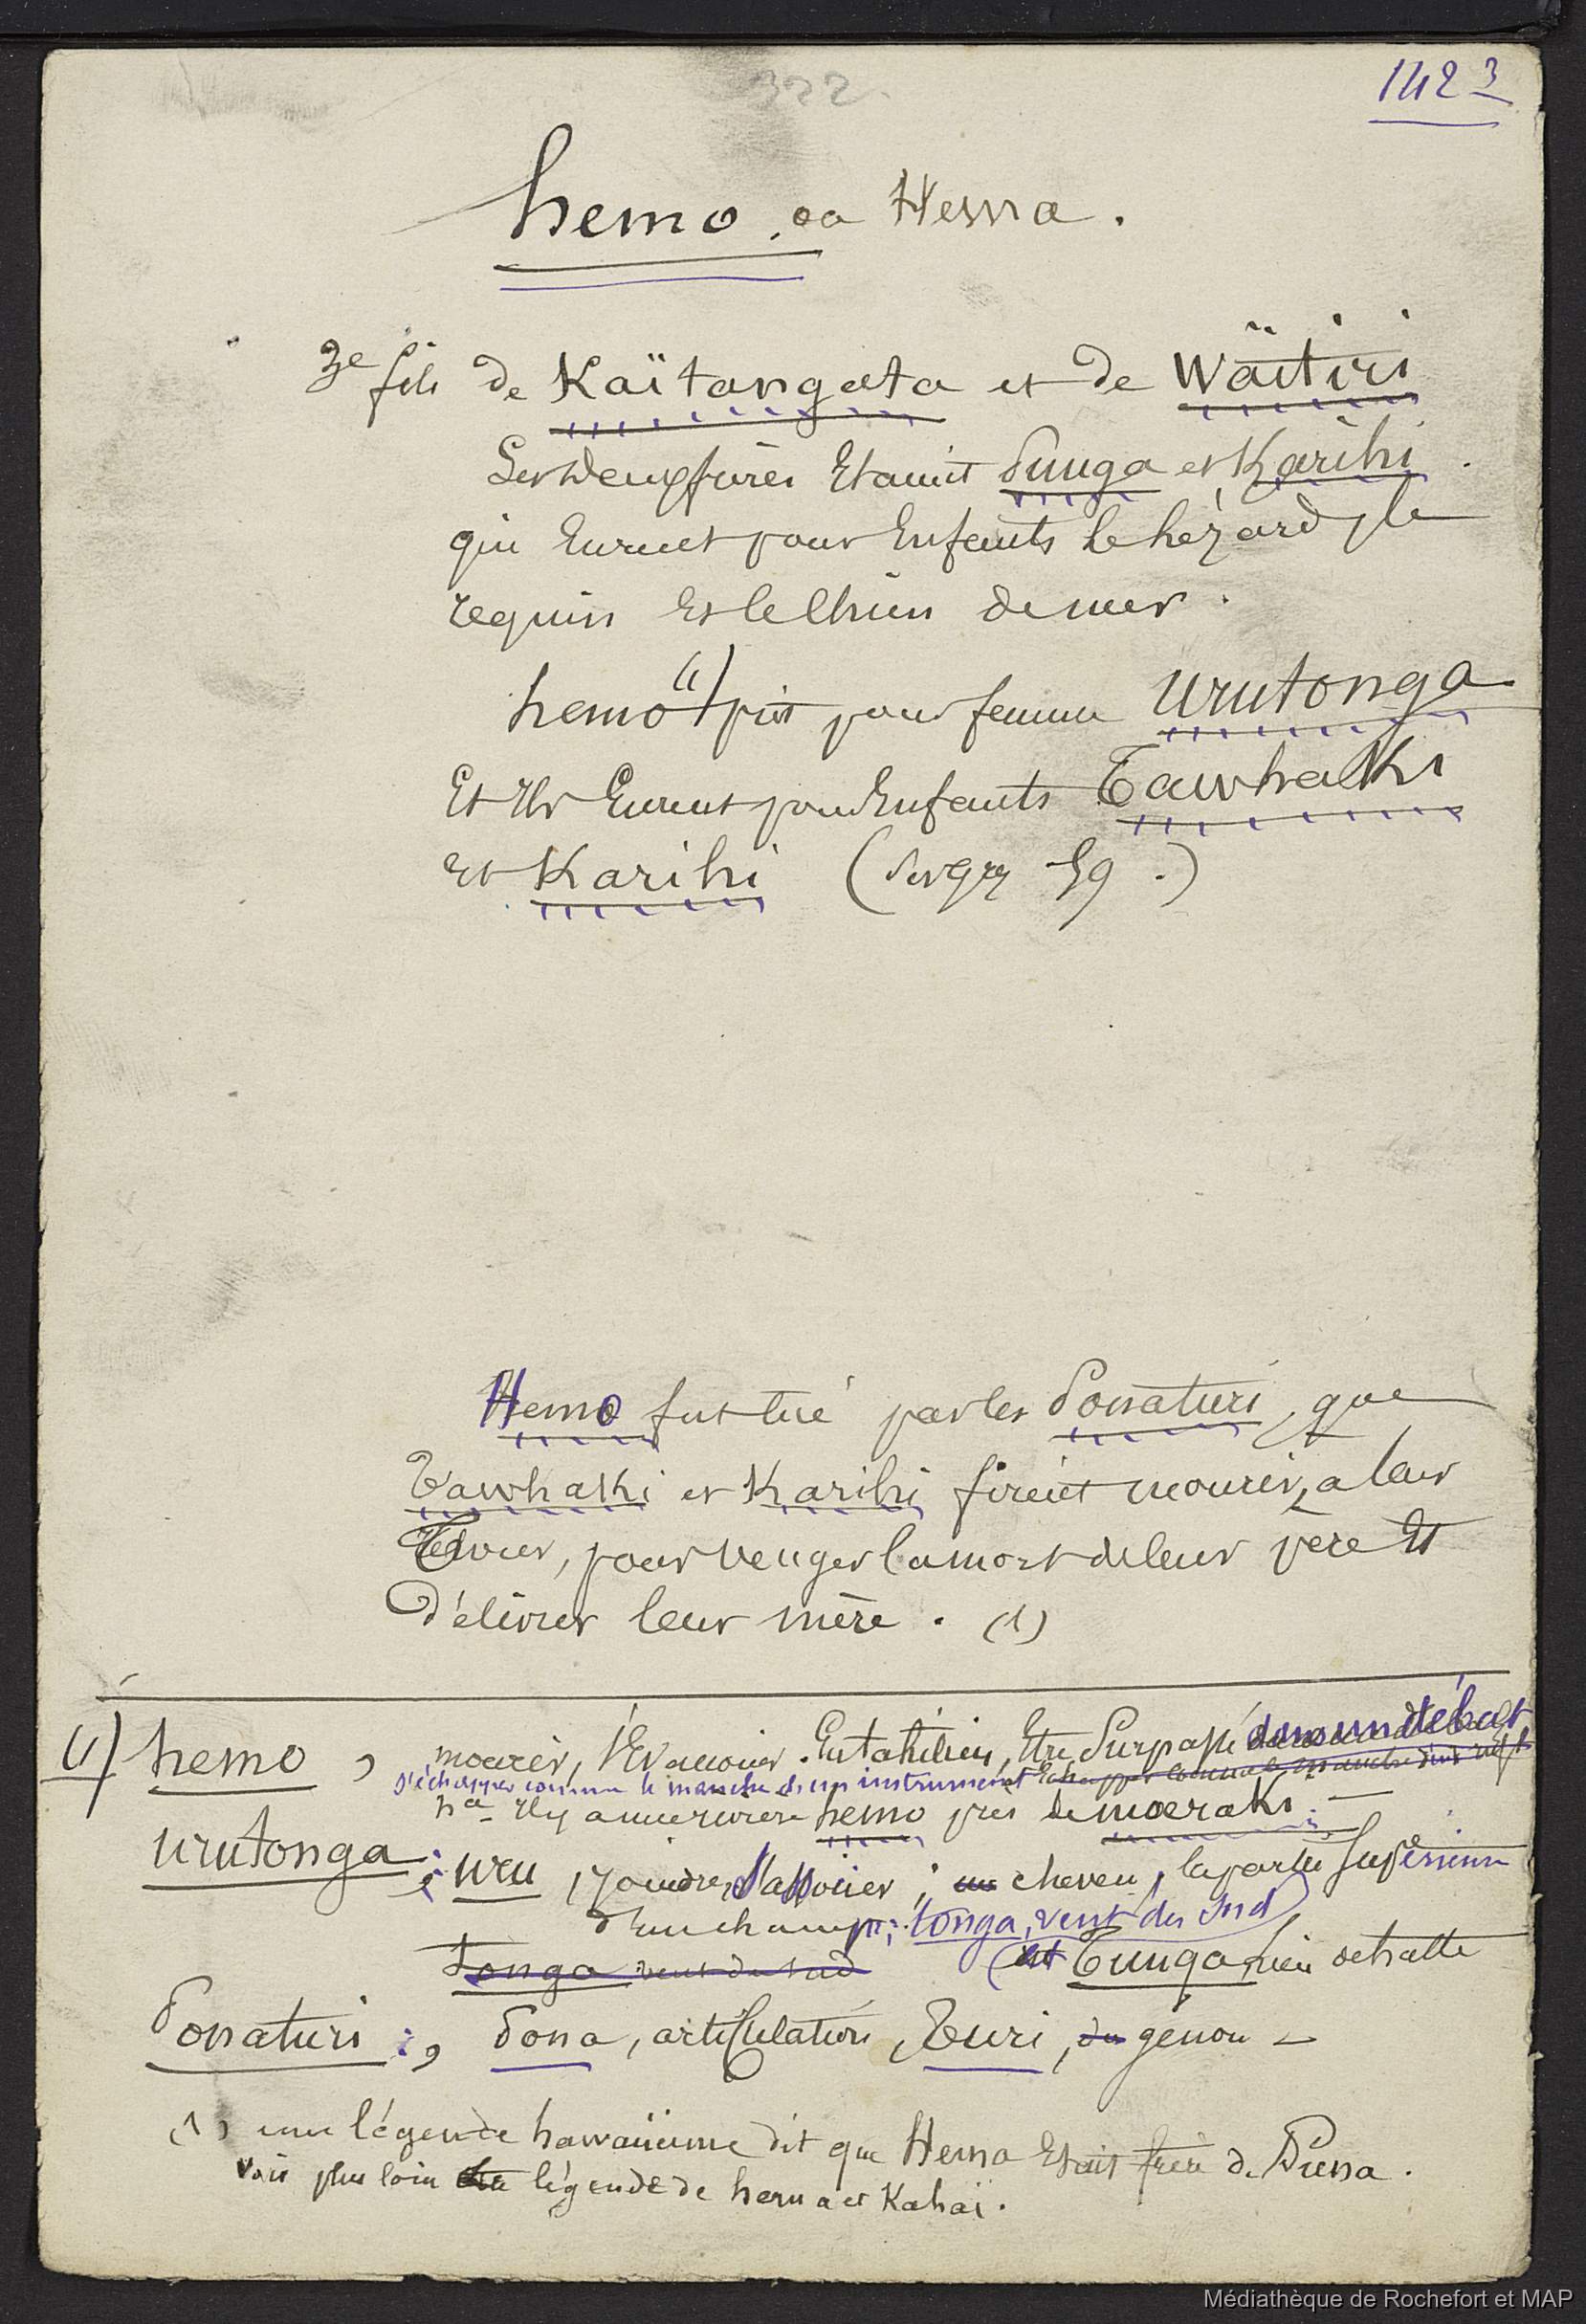 322.
1423
hemo, ou Hema.
3e fils de Kaïtangata et de Wäitiri
Ses deux frères Etaient Punga et Karihi.
qui Eurent pour Enfants le lézard, le
requin Et le Chien de mer.
hemo (1) prit pour femme Urutonga
Et Ils Eurent pour Enfants Tawhaki
Et Karihi ( 59.)
Hemo fut tué par les Ponaturi, que
Tawhaki et Karihi firent mourir, a leur
Tour, pour venger la mort de leur père Et
délivrer leur mère. (1)
(1) hemo, mourir, s'Evanouir. En tahitien, Etre Surpassé dans un débat
s'échapper comme le manche d'un instrument Echapper comme le manche d'un
na Il y a une rivière hemo près de moeraki. —
Urutonga: uru, joindre, s'associer; un cheveu, la partie supérieure
d'un champ; tonga, vent du Sud
Tonga vent du sud (et Tunga, lieu de halte
Ponaturi:, Pona, articulation, Turi, du genou —
(1) une légende hawaiienne dit que Hema Etait frère de Puna.
Voir plus loin la légende de hema et Kahaï.
Médiathèque de Rochefort et MAP